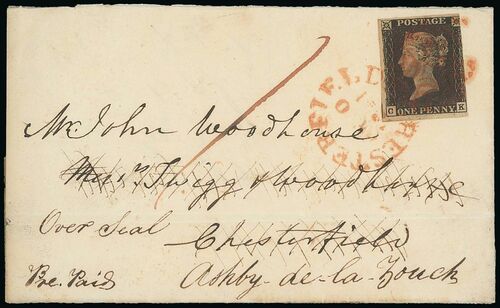 POSTAGE
C K
ONE PENNY
CHESTERFIELD
Mr. John Woodhouse
Twigg & Woodhouse
Over Seal
Chesterfield
Pre. Paid
Ashby-de-la-Zouch